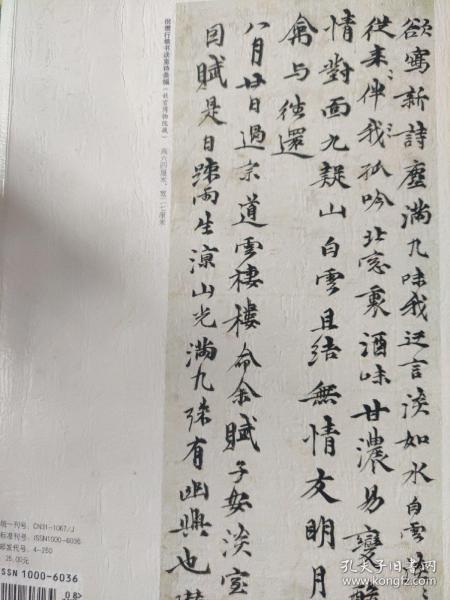 欲寫新詩塵滿几味我迂言淡如水白雲淡〻
從來伴我孤吟北窓裏酒味甘濃易變
情對面九疑山白雲且結無情友明月
禽与往還
八月廿日過宗道雲棲樓命余賦子安淡室
因賦是日踈雨生涼山光滿几殊有幽興也
倪瓒行楷书淡室诗条幅（故宫博物院藏） 高六四厘米、宽二七厘米
统一刊号：CN31-1067/J
标准刊号：ISSN1000-6036
邮发代号：4-250
25.00元
SSN 1000-6036
08>
孔夫子旧书网